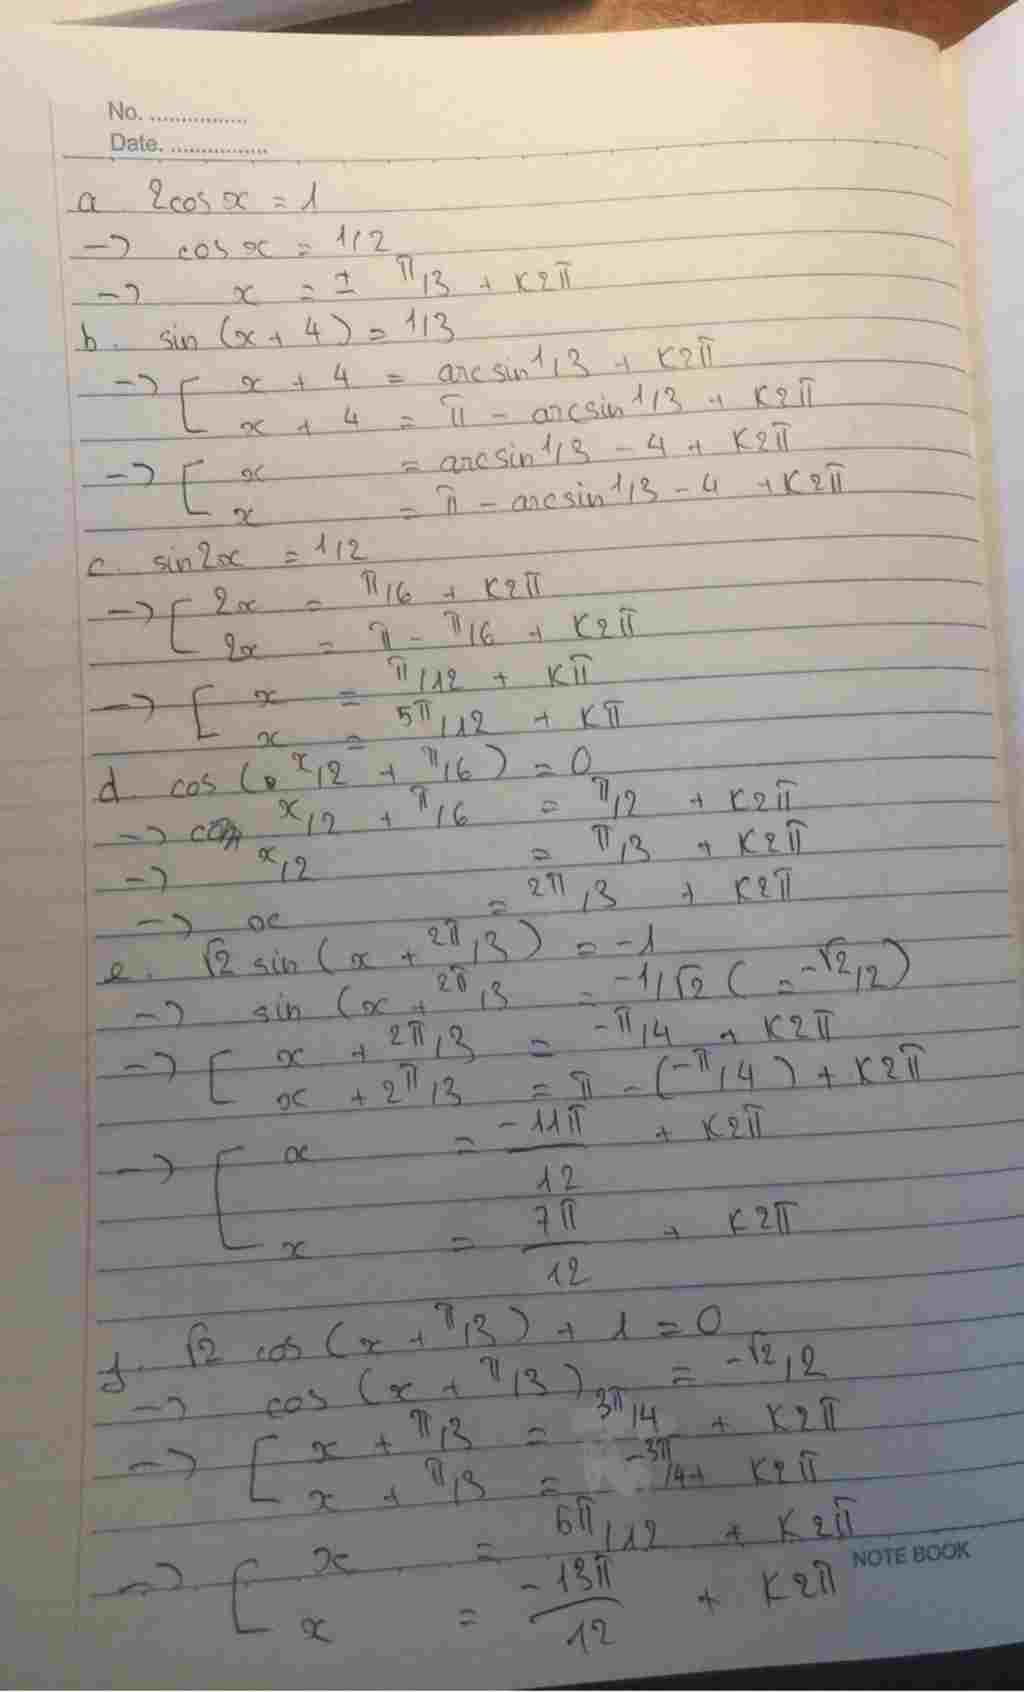 No. ................
Date. ................
a 2cos x = 1
-> cos x = 1/2
-> x = ± π/3 + K2π
b. sin (x + 4) = 1/3
-> [ x + 4 = arcsin 1/3 + K2π
x + 4 = π - arcsin 1/3 + K2π
-> [ x = arcsin 1/3 - 4 + K2π
x = π - arcsin 1/3 - 4 + K2π
c. sin2x = 1/2
-> [ 2x = π/6 + K2π
2x = π - π/6 + K2π
-> [ x = π/12 + Kπ
x = 5π/12 + Kπ
d cos ( x/2 + π/6 ) = 0
-> x/2 + π/6 = π/2 + K2π
-> x/2 = π/3 + K2π
-> x = 2π/3 + K2π
e. √2 sin ( x + 2π/3 ) = -1
-> sin (x + 2π/3 = -1/√2 ( = -√2/2 )
-> [ x + 2π/3 = -π/4 + K2π
x + 2π/3 = π - (-π/4) + K2π
-> [ x = -11π/12 + K2π
x = 7π/12 + K2π
f. √2 cos ( x + π/3 ) + 1 = 0
-> cos ( x + π/3 ) = -√2/2
-> [ x + π/3 = 3π/4 + K2π
x + π/3 = -3π/4 + K2π
-> [ x = /12 + K2π
x = -13π/12 + K2π
NOTE BOOK